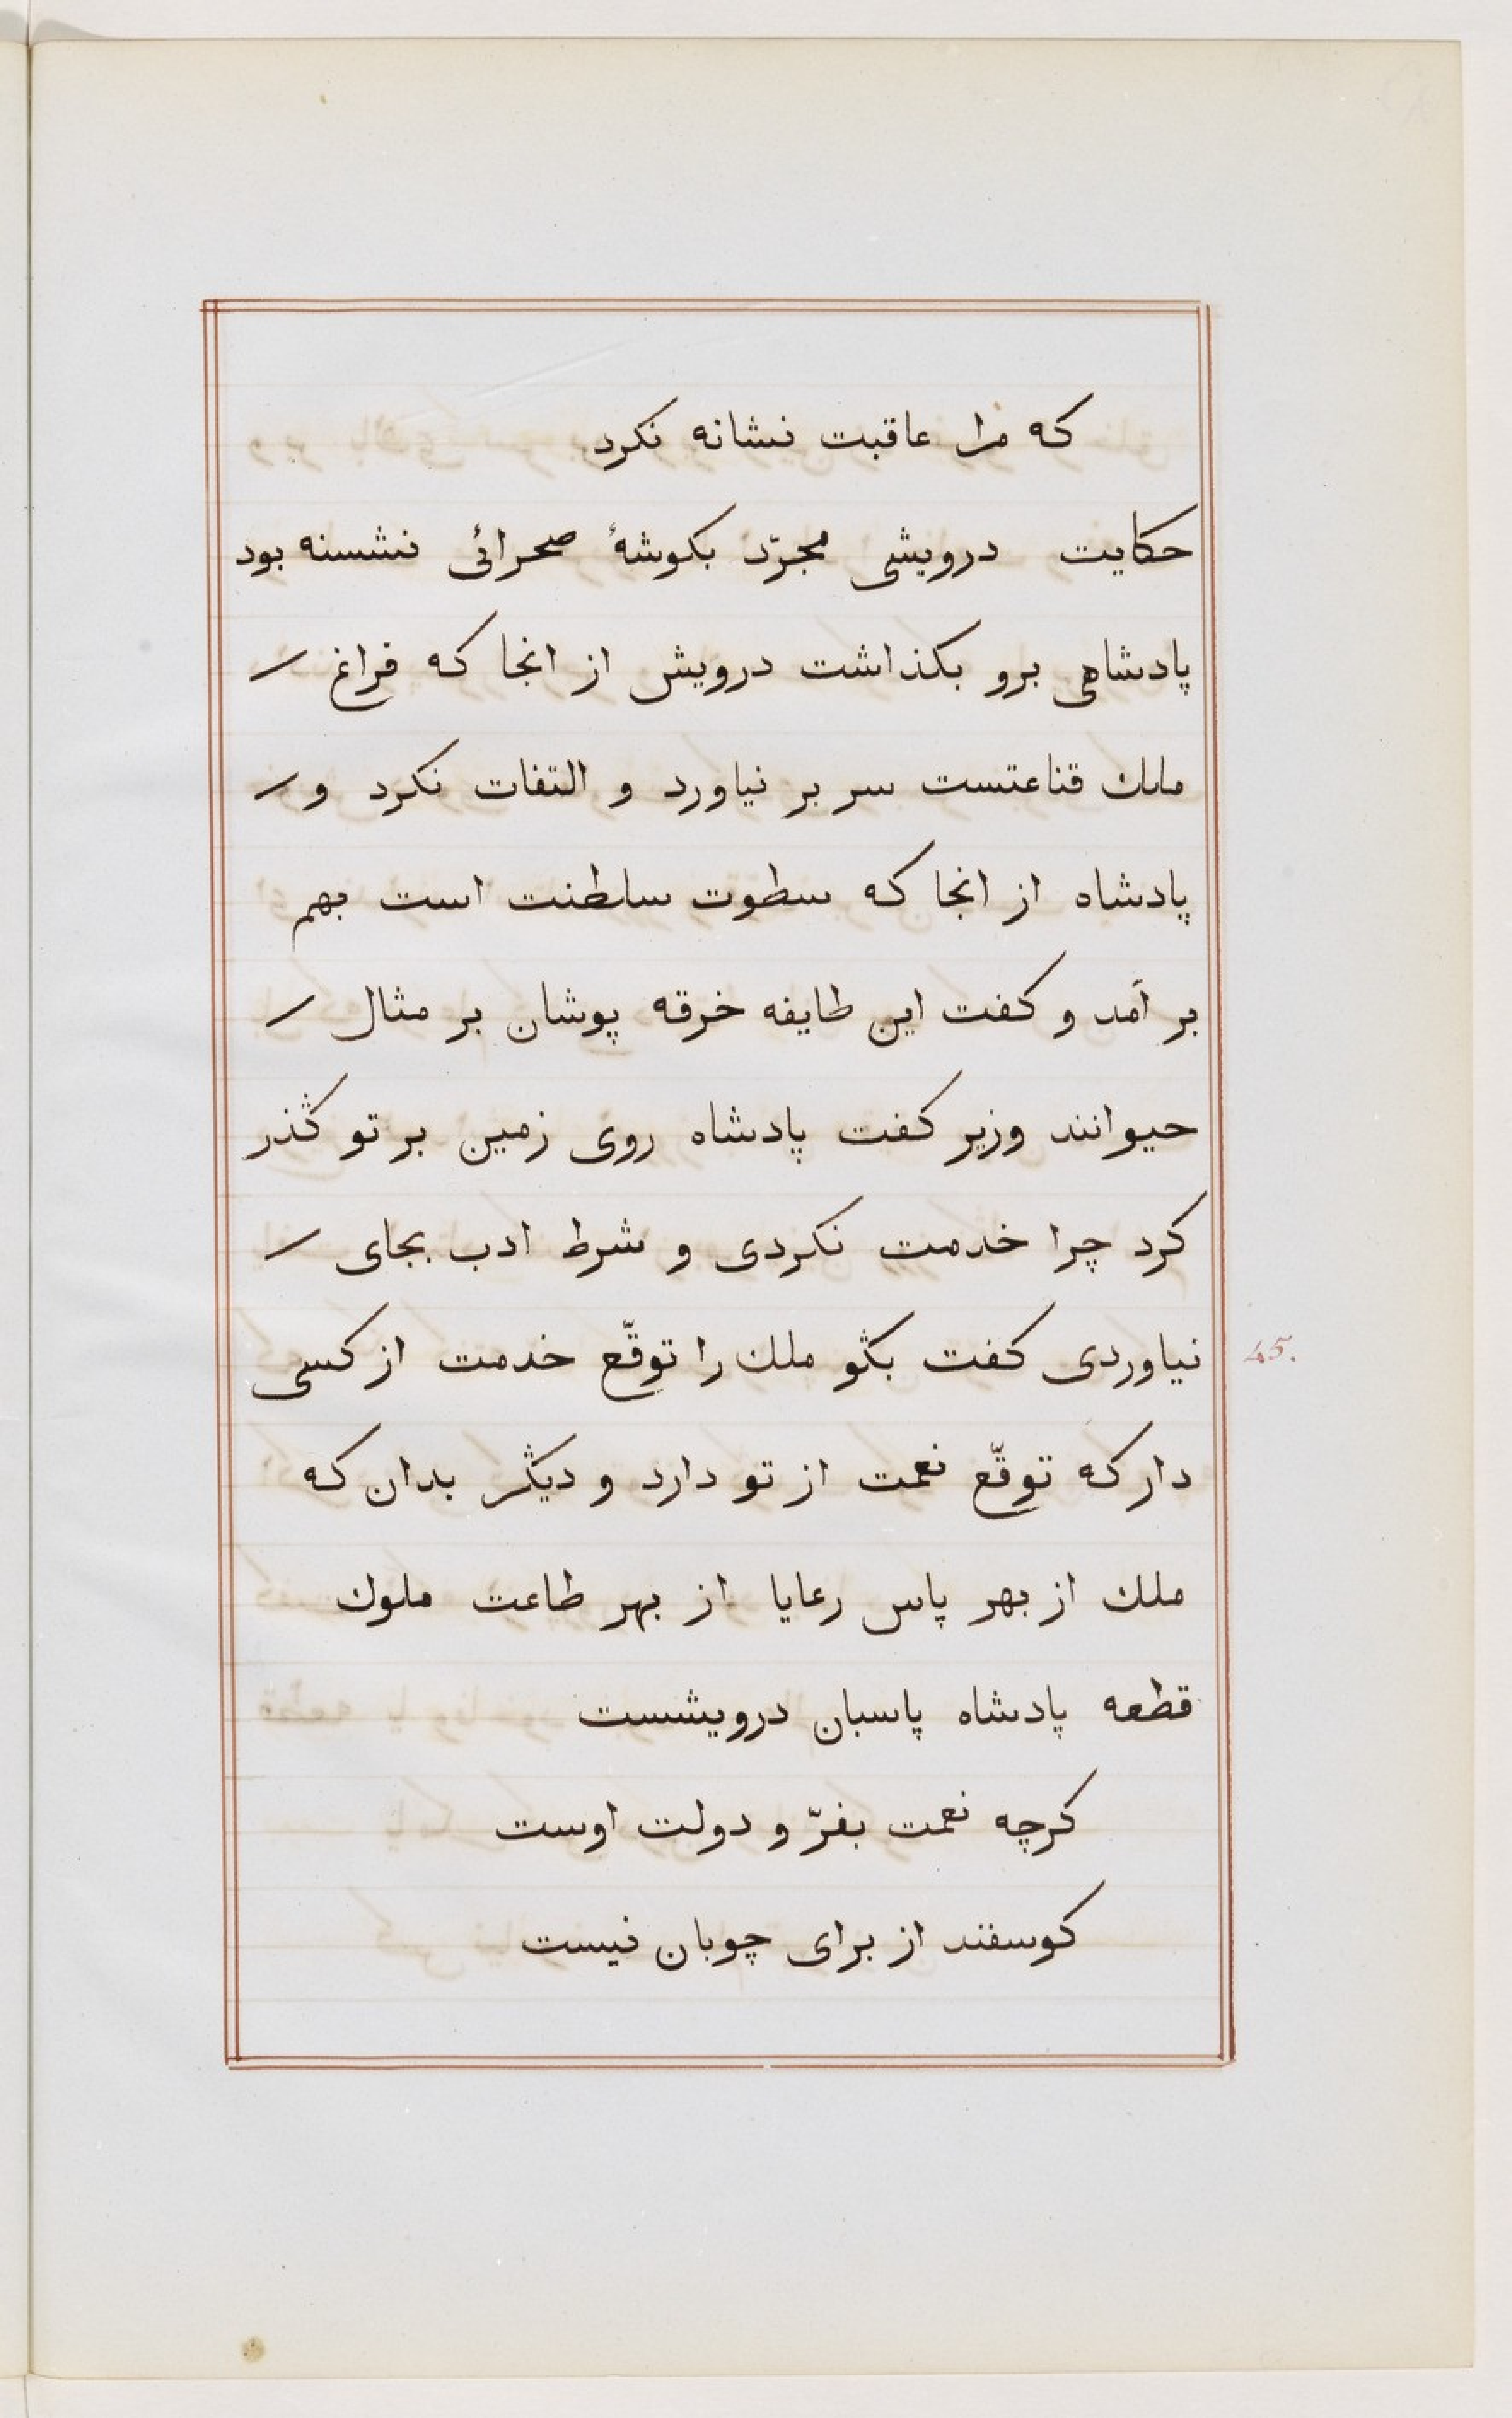 که مرا عاقبت نشانه نکرد
حکایت درویشی مجرّد بکوشهٔ صحرائی نشسته بود
پادشاهی برو بکذاشت درویش از انجا که فراغ
ملك قناعتست سر بر نیاورد و التفات نکرد و
پادشاه از انجا که سطوت سلطنت است بهم
بر آمد و کفت این طایفه خرقه پوشان بر مثال
حیوانند وزیر کفت پادشاه روی زمین بر تو گذر
کرد چرا خدمت نکردی و شرط ادب بجای
نیاوردی کفت بگو ملك را توقّع خدمت از کسی
45.
دار که توقّع نعمت از تو دارد و دیگر بدان که
ملك از بهر پاس رعایا از بهر طاعت ملوك
قطعه پادشاه پاسبان درویشست
کرچه نعمت بفرّ و دولت اوست
کوسفند از برای چوبان نیست